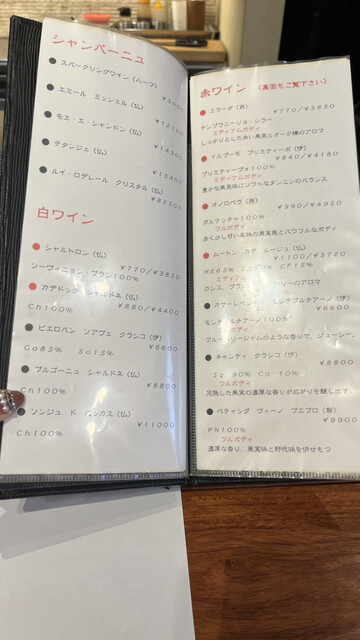 シャンパーニュ
● スパークリングワイン(ハーフ)
● エミール ミッシェル(仏)
● モエ・エ・シャンドン(仏)
● テタンジェ(仏)
● ルイ・ロデレール クリスタル(仏)
¥82500
白ワイン
● シャルトロン(仏)
¥770/¥3850
ソーヴィニョン・ブラン100%
● カデドック シャルドネ(仏)
¥880/¥4400
Ch100%
● ピエロパン ソアヴェ クラシコ(伊)
¥6600
Ga85% So15%
● ブルゴーニュ シャルドネ(仏)
¥8800
Ch100%
● ソンジュ ド バッカス(仏)
¥11000
Ch100%
赤ワイン (裏面もご覧下さい)
● ミラーダ(西)
¥770/¥3850
テンプラニーリョ・シラー
ミディアムボディ
しっかりとした赤い果実とオーク樽のアロマ
● イルプーモ プリミティーボ(伊)
¥840/¥4180
プリミティーヴォ100%
ミディアムボディ
豊かな果実味にソフトなタンニンのバランス
● オノロベラ(西)
¥990/¥4950
ガルナッチャ100%
フルボディ
赤く少し甘い風味の果実感とパワフルなボディ
● ムートン カデ ルージュ(仏)
¥1100/¥5720
ME65% CF15%
ミディアム
カシス、ブラ リーのアロマ
● カサーレヴェッキオ モンテプルチアーノ(伊)
¥6600
モンテプルチアーノ100%
フルボディ
ブルーベリージャムのような香りで、ジューシー。
● キャンティ クラシコ(伊)
¥8800
Sg 90% Ca 10%
フルボディ
完熟した果実の濃厚な香りが広がりを醸し出す
● ベティッグ ヴィーノ プエブロ(智)
¥9900
PN100%
フルボディ
濃厚な香り、果実味と野性味を併せもつ